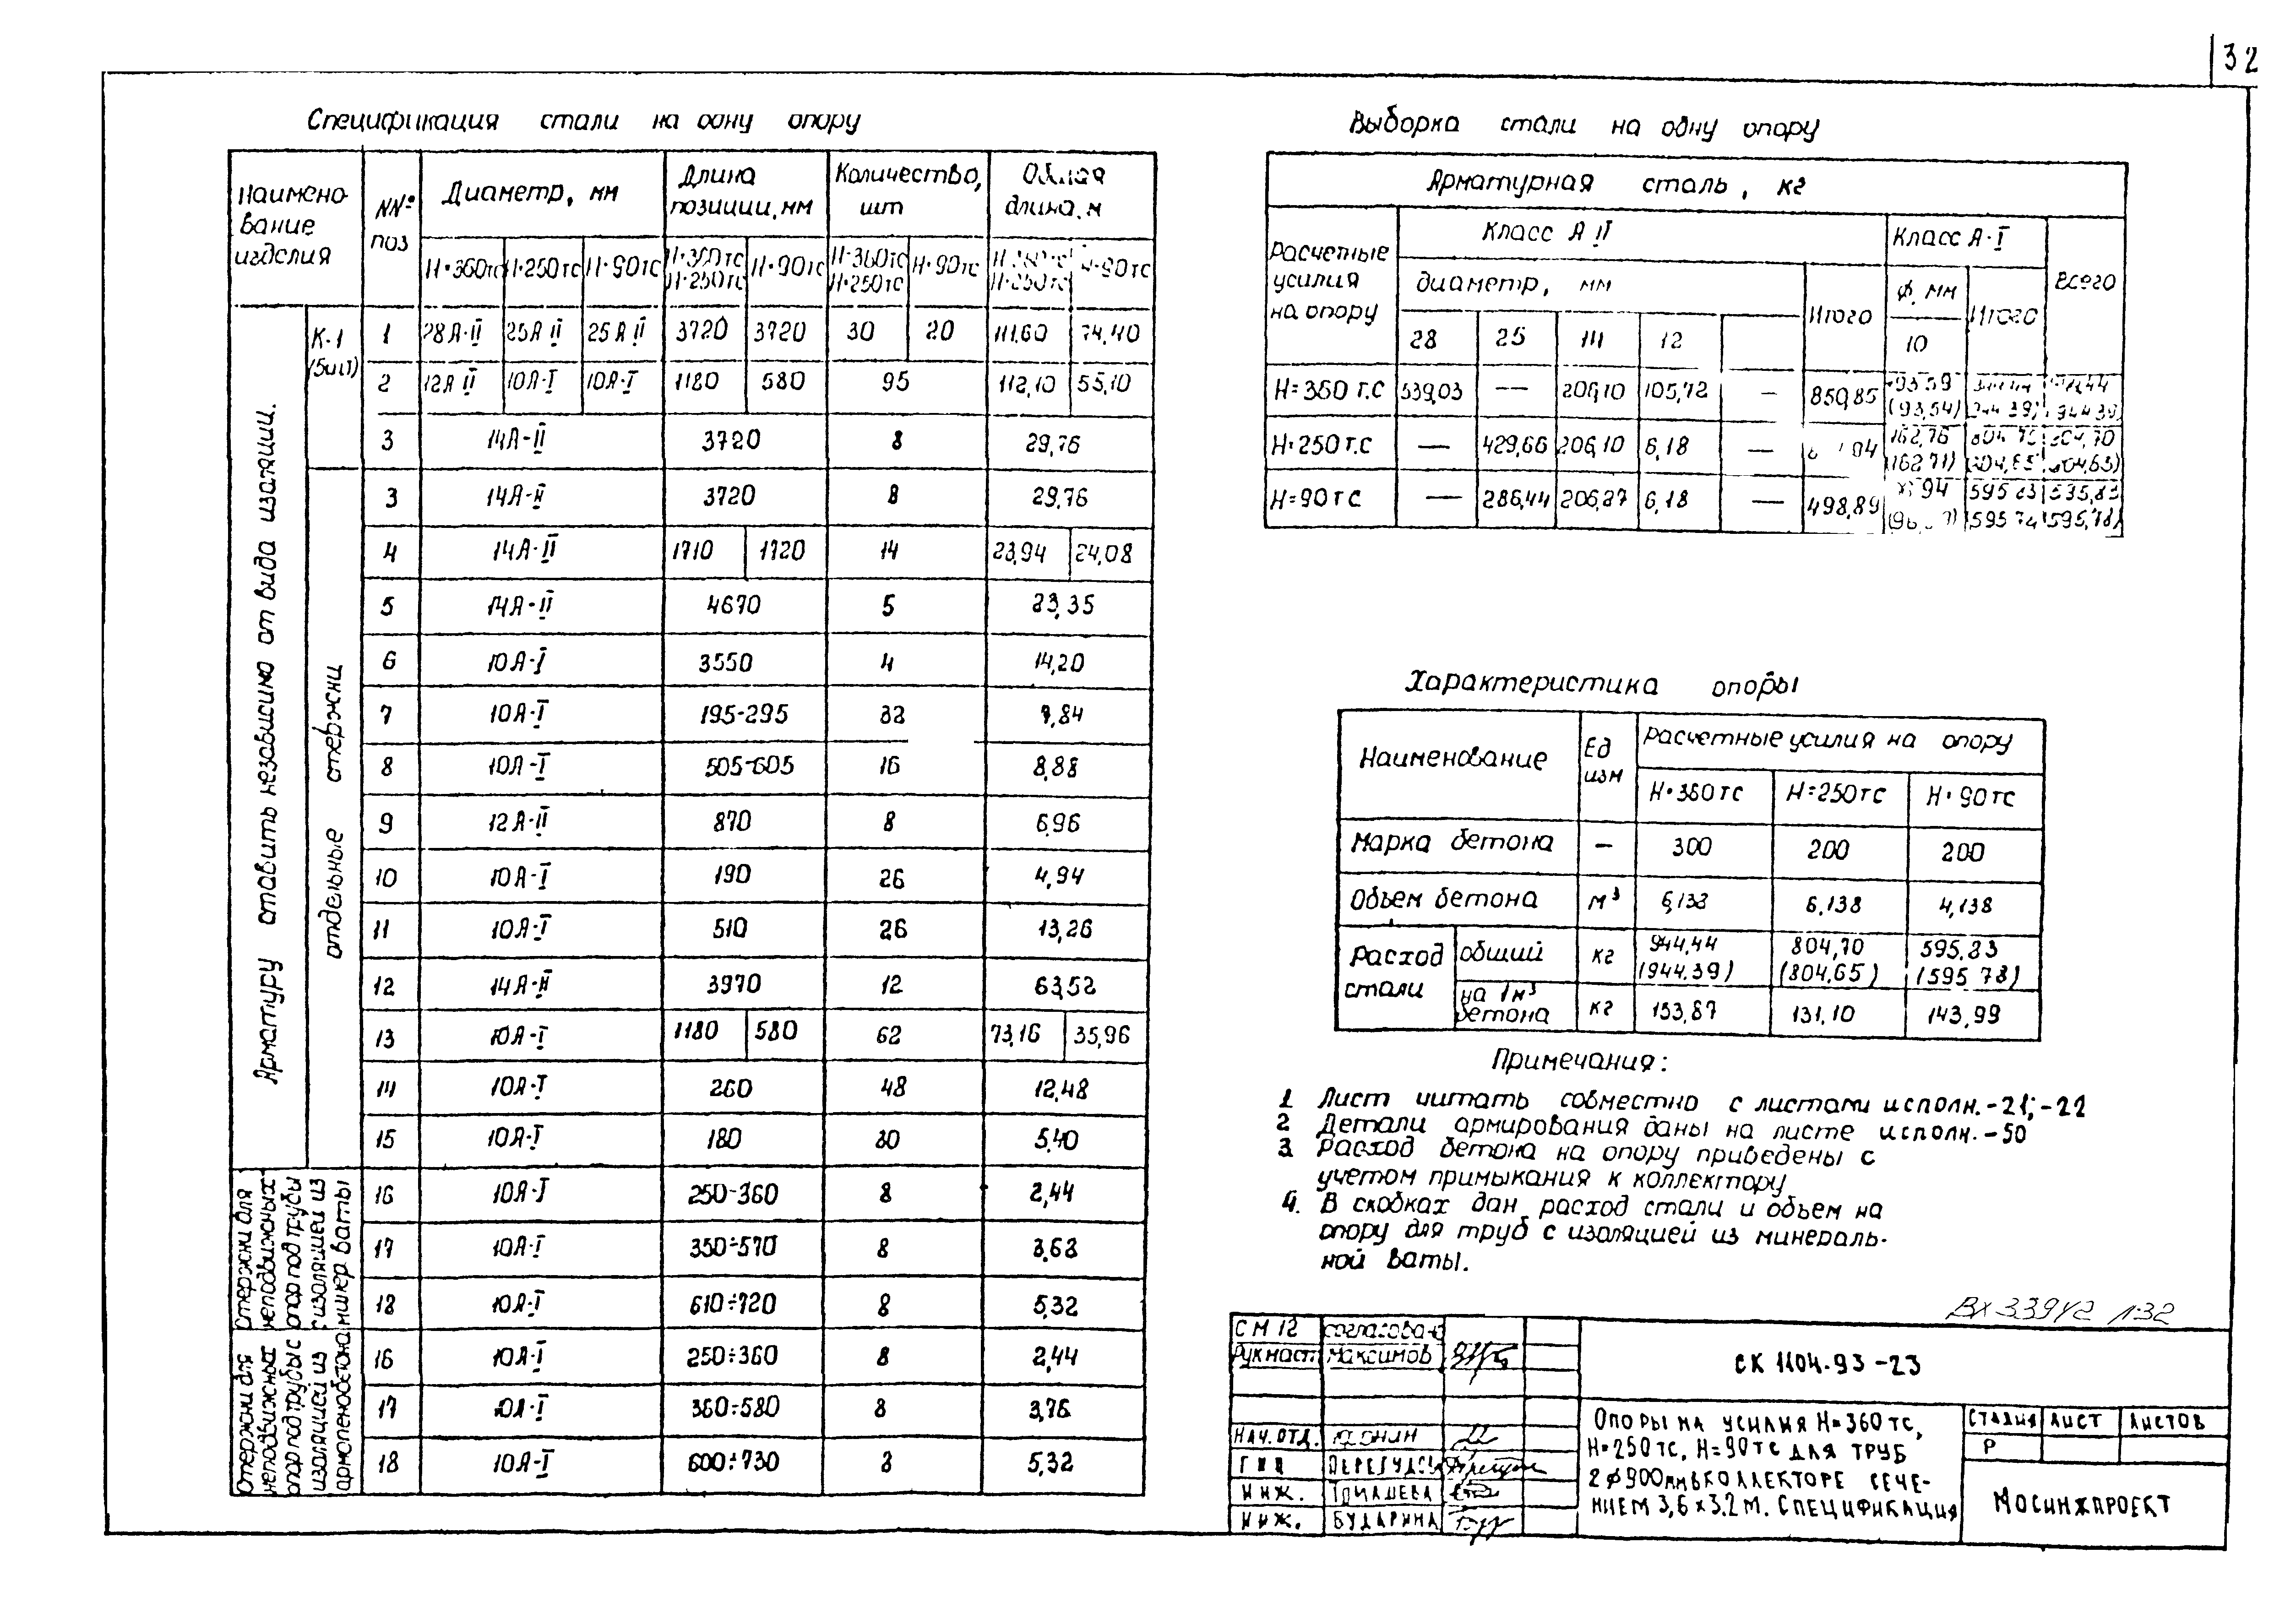 32
Спецификация стали на одну опору
Наимено-
вание
изделия
NNº
поз
Диаметр, мм
Длина
позиции, мм
Количество,
шт
Общая
длина, м
Н=360тс Н=250тс Н=90тс Н=360тс Н=250тс Н=90тс Н=360тс Н=250тс Н=90тс Н=360тс Н=250тс Н=90тс
Арматуру ставить независимо от вида изоляции.
К-1
(5шт)
1 28А-II 25А II 25А II 3720 3720 30 20 111,60 74,40
2 12А II 10А-I 10А-I 1180 580 95 112,10 55,10
3 14А-II 3720 8 29,76
отдельные стержни
3 14А-II 3720 8 29,76
4 14А-II 1710 1720 14 23,94 24,08
5 14А-II 4670 5 23,35
6 10А-I 3550 4 14,20
7 10А-I 195-295 32 7,84
8 10А-I 505-605 16 8,88
9 12А-II 870 8 6,96
10 10А-I 190 26 4,94
11 10А-I 510 26 13,26
12 14А-II 3970 12 63,52
13 10А-I 1180 580 62 73,16 35,96
14 10А-I 260 48 12,48
15 10А-I 180 30 5,40
Стержни для
неподвижных
опор под трубы
с изоляцией из
минер ваты
16 10А-I 250-360 8 2,44
17 10А-I 350÷570 8 3,68
18 10А-I 610÷720 8 5,32
Стержни для
неподвижных
опор под трубы с
изоляцией из
армопенобетона
16 10А-I 250÷360 8 2,44
17 10А-I 360÷580 8 3,76
18 10А-I 600÷730 8 5,32
Выборка стали на одну опору
Арматурная сталь, кг
Расчетные
усилия
на опору
Класс А II
Класс А-I
Всего
диаметр, мм
Итого
ф, мм
Итого
28 25 14 12
10
Н=360 т.с 539,03 — 206,10 105,72 — 850,85 93,59 944,44
(93,54) 944,39) 944,39)
Н=250т.с — 429,66 206,10 6,18 — 162,76 804,70 804,70
(162,71) 804,65 804,65)
Н=90тс — 286,44 206,27 6,18 — 498,89 595,83 595,83
595,74 (595,78)
Характеристика опоры
Наименование
Ед
изм
Расчетные усилия на опору
Н=360тс Н=250тс Н=90тс
Марка бетона — 300 200 200
Объем бетона м³ 6,138 6,138 4,138
Расход
стали
общий кг 944,44 804,70 595,83
(944,39) (804,65) (595,78)
на 1м³
бетона кг 153,87 131,10 143,99
Примечания:
1 Лист читать совместно с листами исполн.-21;-22
2 Детали армирования даны на листе исполн.-50
3 Расход бетона на опору приведены с
учетом примыкания к коллектору
4. В скобках дан расход стали и объем на
опору для труб с изоляцией из минераль-
ной ваты.
Вх 33942 л.32
СМ 12 согласовано
Рук маст Максимов
Нач.отд.
ГИП
Инж. Томашева
Инж. Бударина
СК 1104.93-23
Опоры на усилия Н=360тс,
Н=250тс, Н=90тс для труб
2ф900мм в коллекторе сече-
нием 3,6х3,2 м. Спецификация
Стадия Лист Листов
Р
Мосинжпроект